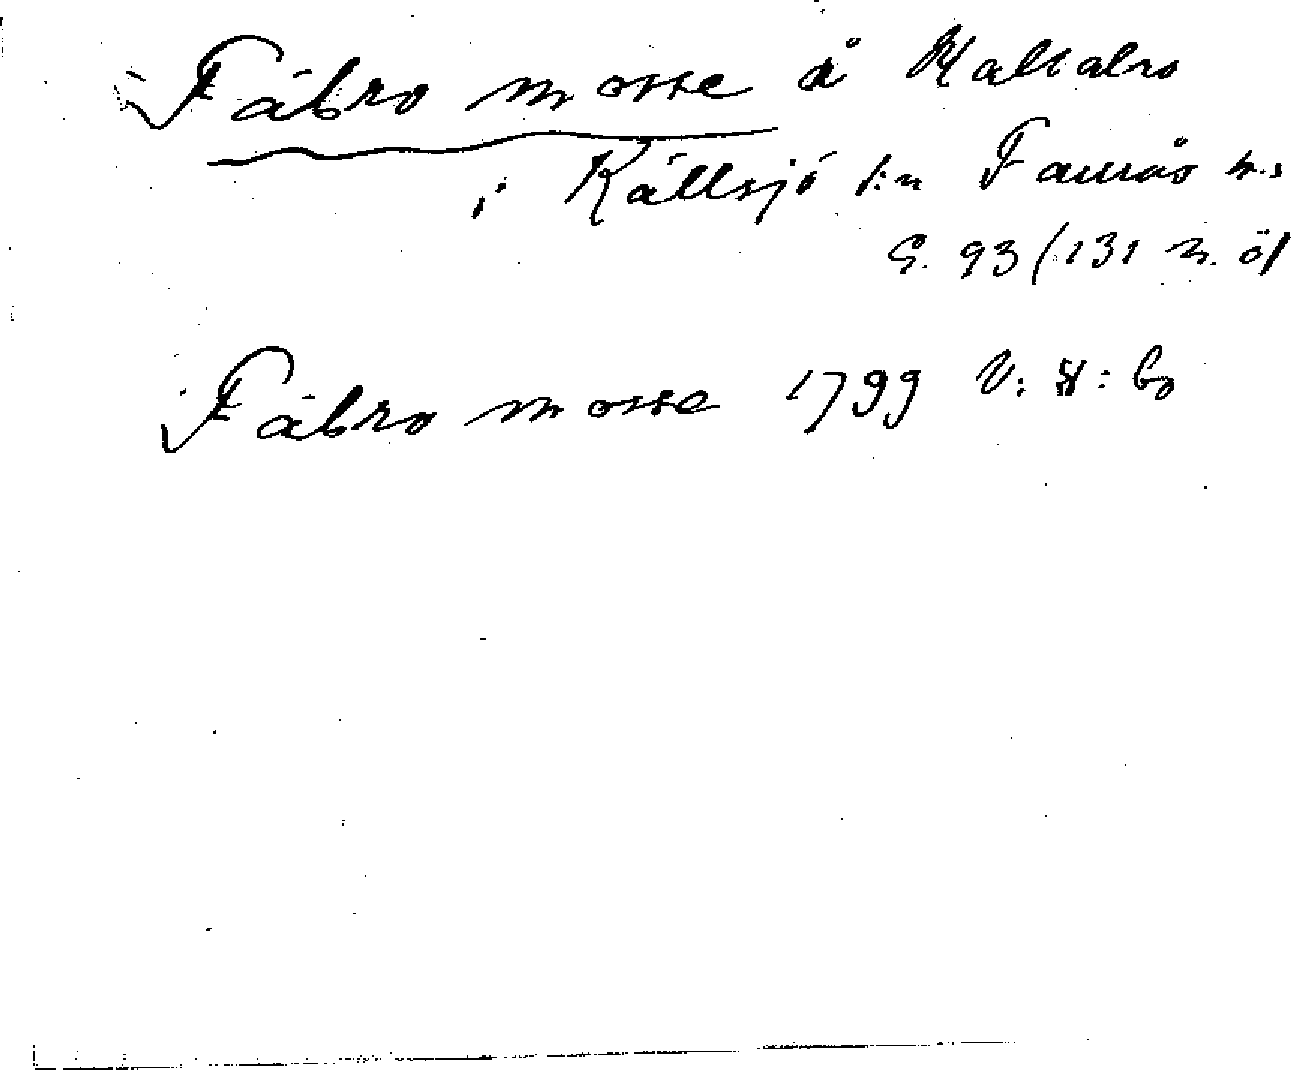 Fäbro mosse å Mallabro
i Källsjö s:n Faurås h.,
G. 93 (131 m. öf
Fäbro mosse 1799 V. H: bo